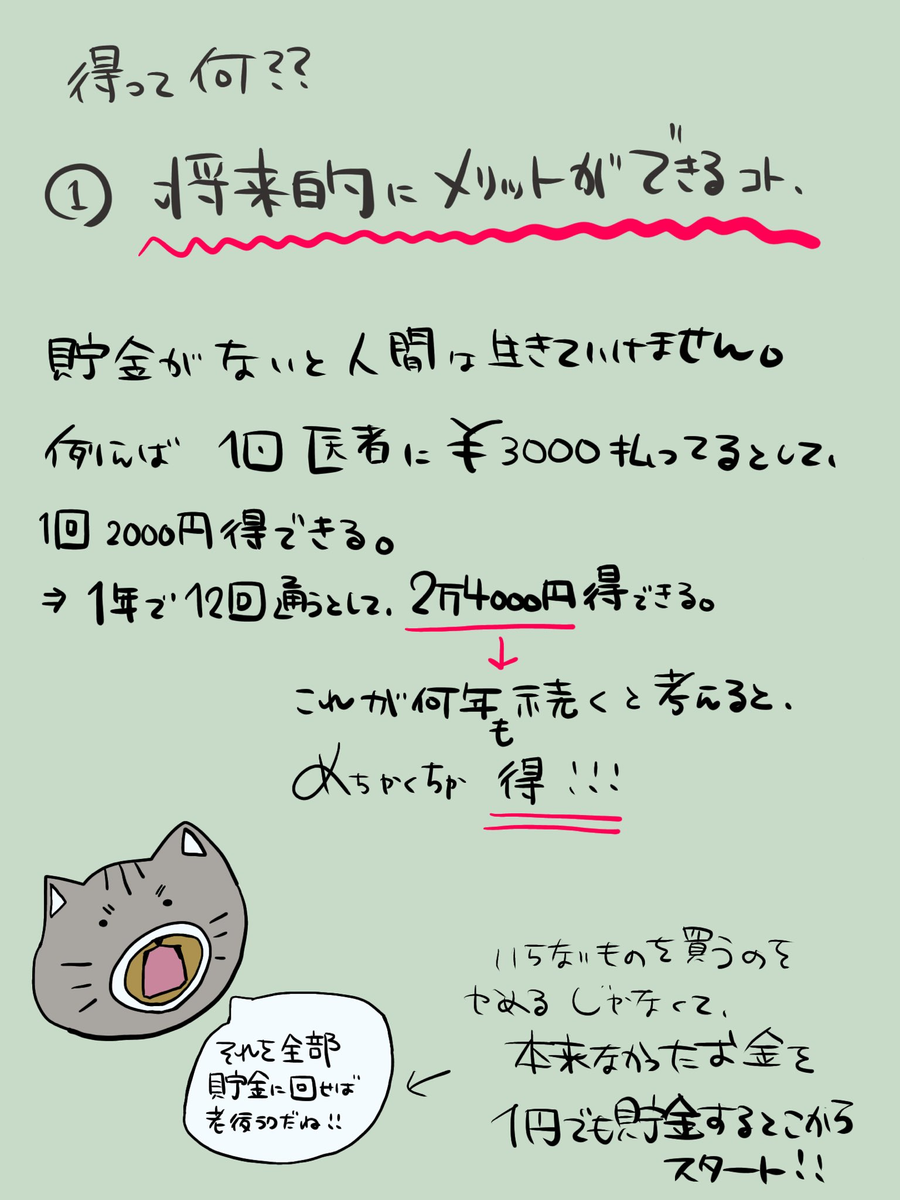 得って何??
① 将来的にメリットができるコト、
貯金がないと人間は生きていけません。
例えば 1回 医者に ¥3000 払ってるとして、
1回 2000円得できる。
⇒ 1年で12回通うとして、2万4000円得できる。
↓
これが何年も続くと考えると、
めちゃくちゃ 得!!!
いらないものを買うのを
やめる じゃなくて、
本来なかったお金を
1円でも貯金するとこから
スタート!!
それを全部
貯金に回せば
老後うはだね!!